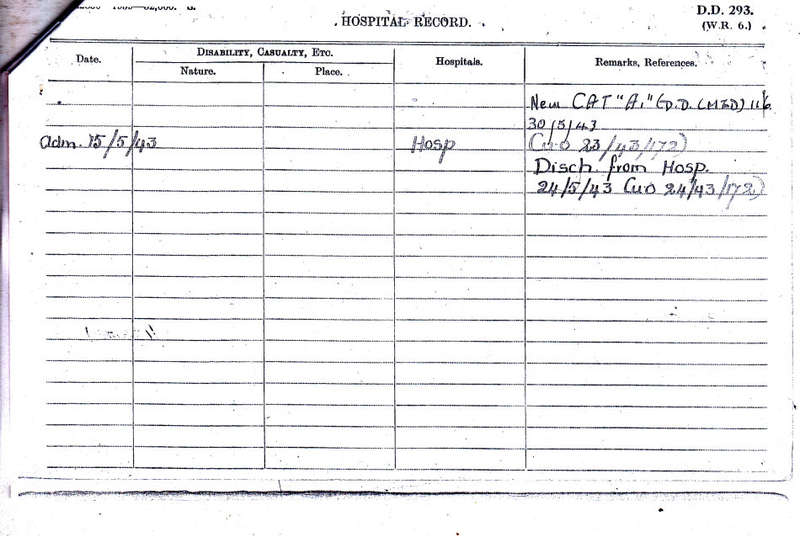 D.D. 293.
(W.R. 6.)
HOSPITAL RECORD.
Date.
DISABILITY, CASUALTY, ETC.
Nature.
Place.
Hospitals.
Remarks, References.
New CAT "A1" (D.D.(MED) 11/6
30/5/43
Adm. 15/5/43 Hosp (UO 23/43/172)
Disch. from Hosp.
24/5/43 (UO 24/43/172)